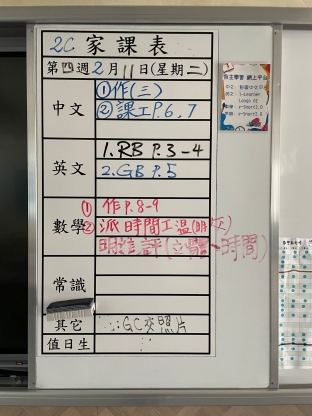 2C 家課表
第四週2月11日(星期二)
中文
①作(三)
②課工P.6,7
英文
1.RB P.3-4
2.GB P.5
數學
① 作P.8-9
② 派時間工温(明正)
明進評(立體、時間)
常識
其它
GC交照片
值日生
自主學習 網上平台